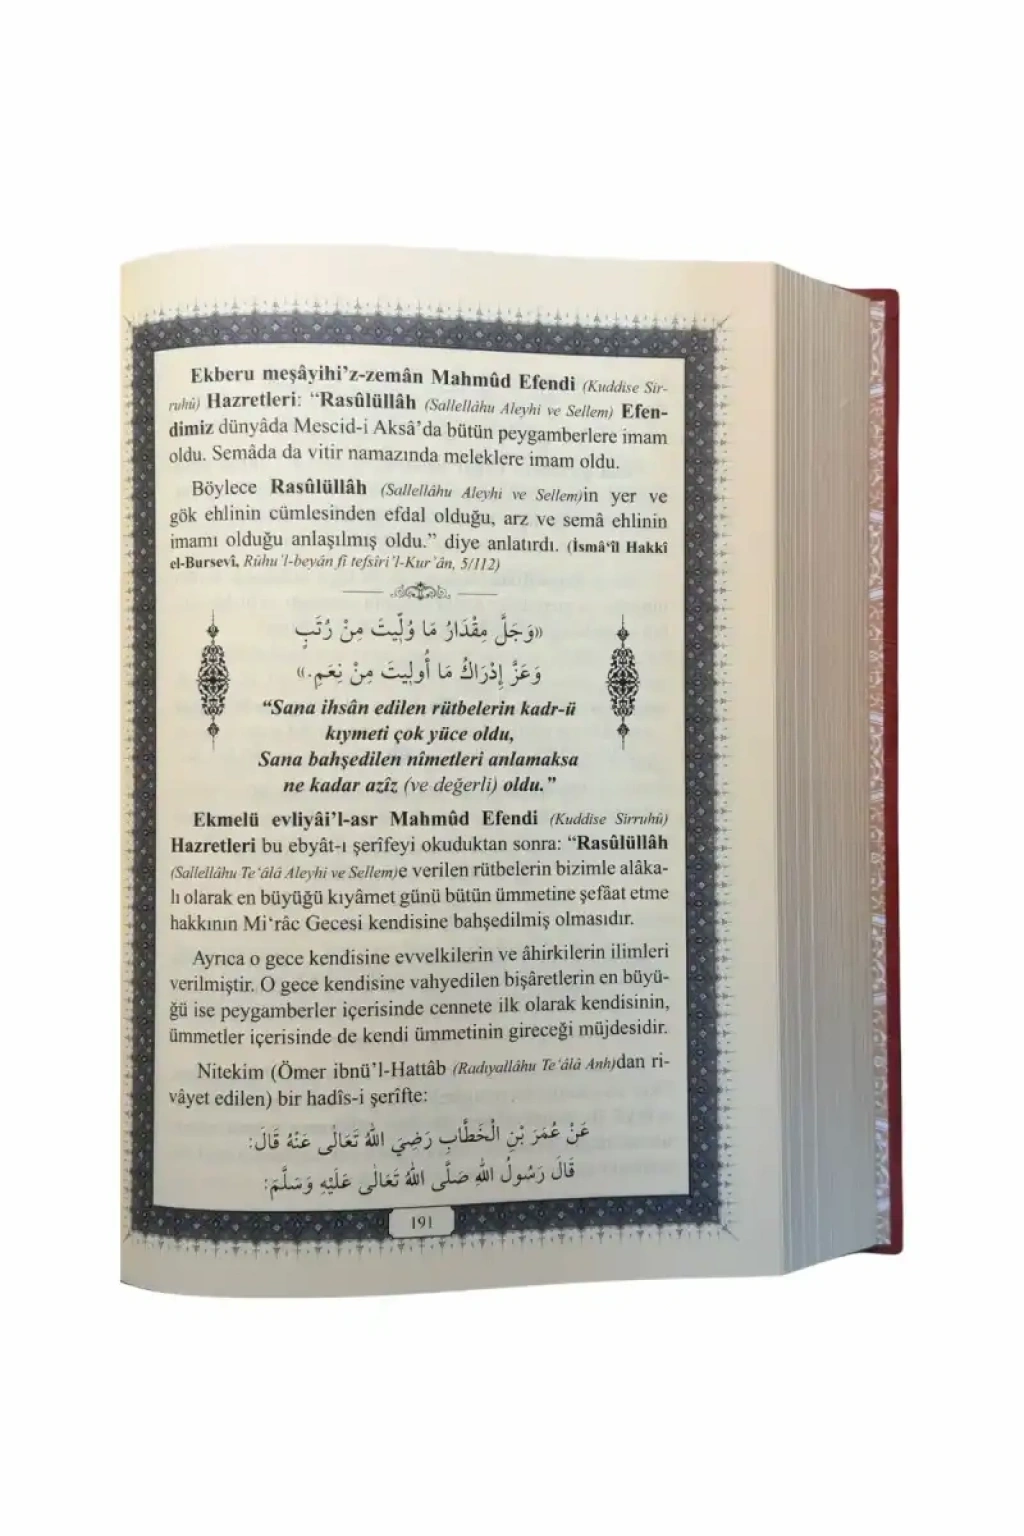 Ekberu meşâyihi’z-zemân Mahmûd Efendi (Kuddise Sir-
ruhû) Hazretleri: “Rasûlüllâh (Sallellâhu Aleyhi ve Sellem) Efen-
dimiz dünyâda Mescid-i Aksâ’da bütün peygamberlere imam
oldu. Semâda da vitir namazında meleklere imam oldu.
Böylece Rasûlüllâh (Sallellâhu Aleyhi ve Sellem)in yer ve
gök ehlinin cümlesinden efdal olduğu, arz ve semâ ehlinin
imamı olduğu anlaşılmış oldu.” diye anlatırdı. (İsmâ‘îl Hakkî
el-Bursevî, Rûhu’l-beyân fî tefsîri’l-Kur’ân, 5/112)
«وَجَلَّ مِقْدَارُ مَا وُلِّيتَ مِنْ رُتَبٍ
وَعَزَّ إِدْرَاكُ مَا أُولِيتَ مِنْ نِعَمِ.»
“Sana ihsân edilen rütbelerin kadr-ü
kıymeti çok yüce oldu,
Sana bahşedilen nîmetleri anlamaksa
ne kadar azîz (ve değerli) oldu.”
Ekmelü evliyâi’l-asr Mahmûd Efendi (Kuddise Sirruhû)
Hazretleri bu ebyât-ı şerîfeyi okuduktan sonra: “Rasûlüllâh
(Sallellâhu Te‘âlâ Aleyhi ve Sellem)e verilen rütbelerin bizimle alâka-
lı olarak en büyüğü kıyâmet günü bütün ümmetine şefâat etme
hakkının Mi‘râc Gecesi kendisine bahşedilmiş olmasıdır.
Ayrıca o gece kendisine evvelkilerin ve âhirkilerin ilimleri
verilmiştir. O gece kendisine vahyedilen bişâretlerin en büyü-
ğü ise peygamberler içerisinde cennete ilk olarak kendisinin,
ümmetler içerisinde de kendi ümmetinin gireceği müjdesidir.
Nitekim (Ömer ibnü’l-Hattâb (Radıyallâhu Te‘âlâ Anh)dan ri-
vâyet edilen) bir hadîs-i şerîfte:
عَنْ عُمَرَ بْنِ الْخَطَّابِ رَضِيَ اللهُ تَعَالَى عَنْهُ قَالَ:
قَالَ رَسُولُ اللهِ صَلَّى اللهُ تَعَالَى عَلَيْهِ وَسَلَّمَ:
191